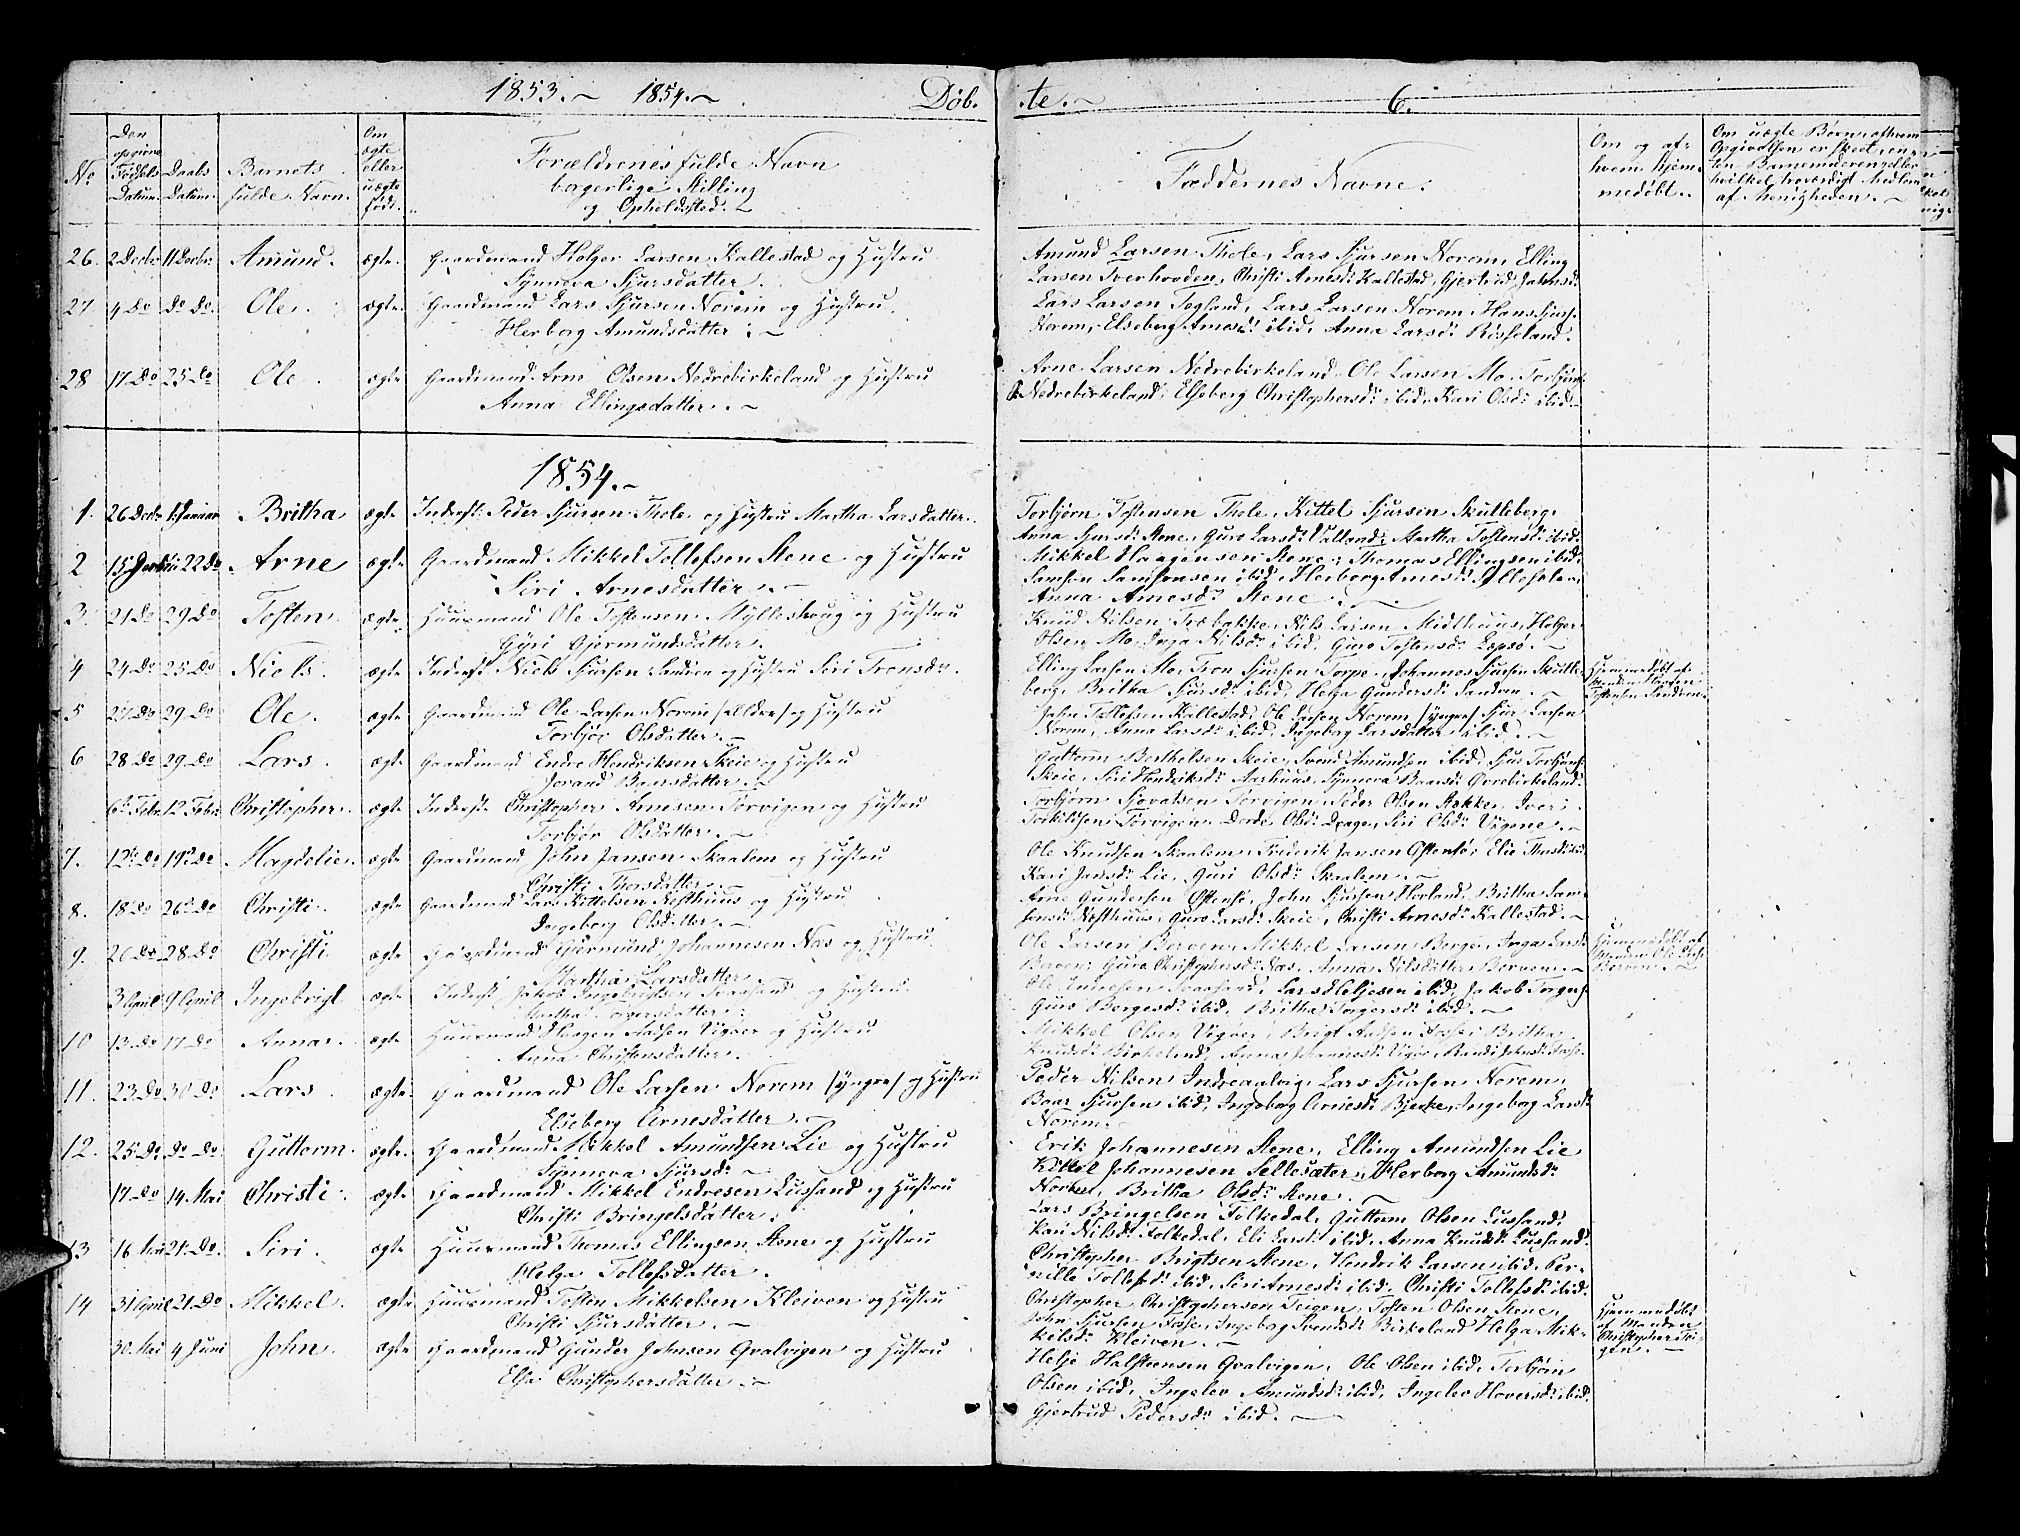 1853.~ 1854.~ Døb.
te.~ 6.
No
Den opgivne Fødsels Datum.
Daabs Datum.
Barnets fulde Navn.
Om ægte eller uægte født.
Forældrenes fulde Navn
borgerlige Stilling
og Opholdssted.
Faddernes Navne.
Om og af hvem hjemmedøbt.
Om uægte Børn, afhvem
Opgivelsen er skeet, en-
ten Barnemoderen, eller
hvilket troværdigt Medlem
af Menigheden.~
26. 2 Decbr. 11 Decbr. Amund. ægte. Gaardmand Holger Larsen Kallestad og Hustru
Synneva Sjursdatter.
Amund Larsen Thole, Lars Sjursen Norem, Elling
Larsen, Christi Arnesd: Kallestad, Gjertrud Johnsd:
27 4 Do Do Do. Ole. ægte. Gaardmand Lars Sjursen Norem og Hustru
Herborg Amundsdatter.~
Lars Larsen Tegland, Lars Larsen Norem, Hans Sjurs:
Norem, Elseberg Arnesd: ibid, Anna Larsd: Rosseland.
28 17 Do 25 Do Ole. ægte Gaardmand Arne Olsen Nedrebirkeland og Hustru
Anna Ellingsdatter.~
Arne Larsen Nedrebirkeland, Ole Larsen Mo, Torbjør
Nedrebirkeland, Elseberg Christophersd: ibid, Kari Olsd: ibid.
1854.~
1. 26 Decbr 1 Januar Britha ægte Inderst: Peder Sjursen Thole og Hustru Martha Larsdatter.
Torbjørn Tostensen Thole, Kittel Sjursen Skutleberg,
Anna Sjursd: Stene, Guro Larsd: Valland, Martha Tostensd: ibid.
2 15 Januar 22 Do Arne ægte Gaardmand Mikkel Tollefsen Stene og Hustru
Siri Arnesdatter.~
Mikkel Haagensen Stene, Thomas Ellingsen ibid,
Samson Samsonsen ibid, Herborg Arnesd:
Anna Arnesd: Stene.
3. 21 Do 29 Do Tosten. ægte Huusmand Ole Tostensen Myllestoug og Hustru
Gyri Gjermundsdatter.
Knud Nilsen, Nils Larsen Midthuus, Holger
Olsen Mo, Inga Nilsd: ibid, Guro Tostensd: Lepsø.~
4 24 Do 25 Do Niels. ægte Inderst Niels Sjursen Sandven og Hustru Siri Tronsd:
Elling Larsen Mo, Tron Sjursen Torpe, Johannes Sjursen Skutle-
berg, Britha Sjursd: ibid, Helga Gundersd: Sandven.~
Hjemmedøbt af
Manden Haagen
Tostensen Sandven
5 27 Do 29 Do Ole. ægte Gaardmand Ole Larsen Norem (ældre) og Hustru
Torbjør Olsdatter.~
John Tollefsen Kallestad, Ole Larsen Norem (yngre), Sjur Larsen
Norem, Anna Larsd: ibid, Ingeborg Larsdatter ibid.~
6 28 Do 29 Do Lars. ægte Gaardmand Endre Hendriksen Skeie og Hustru
Jorand Baarsdatter.~
Guttorm Berthelsen Skeie, Svend Amundsen ibid, Sjur Torbjørns:
Skeie, Siri Hendriksd: Aarhuus, Synneva Baarsd: Øvrebirkeland
6te Febr. 12 Febr. Christopher. ægte Inderst: Christopher Arnesen Torvigen og Hustru
Torbjør Olsdatter.~
Torbjørn Sjovatsen Torvigen, Peder Olsen Aakke, Iver
Torkildsen Torvigen, Dorde Olsd: Drage, Siri Olsd:
7. 12te Do 19de Do Magdelie ægte Gaardmand John Jansen Skaalem og Hustru
Christi Thorsdatter.
Ole Knudsen Skaalem, Frederik Jansen Østensø, Elie
Kari Jansd: Lie, Guri Olsd: Skaalem.~
8. 18 Do 26 Do Christi. ægte Gaardmand Lars Kittelsen Nesthuus og Hustru
Ingeborg Olsdatter.~
Arne Gundersen Østensø, John Sjursen Horland, Britha Sam-
sonsd: Nesthuus, Guro Larsd: Skeie, Christi Arnesd: Kallestad.~
9. 20 Do 28 Do Christi ægte Gaardmand Gjermund Johannesen Nes og Hustru
Martha Larsdatter.
Ole Larsen Berven, Mikkel Larsen Berge, Inga Larsd:
Berven, Guro Christophersd: Nes, Anna Nilsdatter Berven.~
Hjemmedøbt af
Manden Ole Lars:
Berven.~
3 April 9 April Ingebrigt ægte Inderst Jakob Ingebrigtsen Svaasand og Hustru
Martha Torgersdatter.
Ole Endresen Svaasand, Lars Heljesen ibid, Jakob Torgers:
Guro Bergesd: ibid, Britha Torgersd: ibid.~
10 13 Do 17 Do Anna. ægte Huusmand Haagen Aadsen Vigøer og Hustru
Anna Christensdatter.
Mikkel Olsen Vigøer, Brigt Aadsen Fosse, Britha
Knudsd: Birkeland, Anna Johannesd: Vigør, Randi Johnsd: Fosse.
11. 23 Do 30 Do Lars ægte. Gaardmand Ole Larsen Norem (yngre) og Hustru
Elseberg Arnesdatter.~
Peder Nilsen Indreaalvig, Lars Sjursen Norem,
Baar Sjursen ibid, Ingeborg Arnesd: Bjerke, Ingeborg Larsd:
Norem.
12. 25 Do Do Do Guttorm. ægte. Gaardmand Mikkel Amundsen Lie og Hustru
Synneva Sjursd:~
Erik Johannesen Stene, Elling Amundsen Lie
Kittel Johannesen Sellesæter, Herborg Amundsd:
Norem, Britha Olsd: Stene.~
17 Do 14 Mai Christi. ægte. Gaardmand Mikkel Endresen Lussand og Hustru
Christi Bringelsdatter.
Lars Bringelsen Folkedal, Guttorm Olsen Lussand,
Kari Nilsd: Folkedal, Eli Larsd: ibid, Anna Knudsd: Lussand.
13 16 Mai 21 Do. Siri. ægte Huusmand Thomas Ellingsen Stene og Hustru
Helga Tollefsdatter.
Christopher Brigtsen Stene, Hendrik Larsen ibid, Per-
nille Tollefsd: ibid, Siri Arnesd: ibid, Christi Tollefsd: ibid.
14 31 April 21 Do Mikkel. ægte Huusmand Tosten Mikkelsen Kleiven og Hustru
Christi Sjursdatter.~
Christopher Christophersen Teigen, Tosten Olsen Stene,
John Sjursen Fosse, Ingeborg Svendsd: Birkeland, Helga Mik-
kelsd: Kleiven.~
Hjemmedøbt
af Manden
Christopher Tei-
gen.~
30 Mai 4 Juni John. ægte Gaardmand Gunder Johnsen Qvalvigen og Hustru
Elsa Christophersdatter.~
Helje Halsteensen Qvalvigen, Ole Olsen ibid, Torbjørn
Olsen ibid, Ingelev Amundsd: ibid, Ingelev Haversd: ibid,
Gjertrud Pedersd: ibid.~